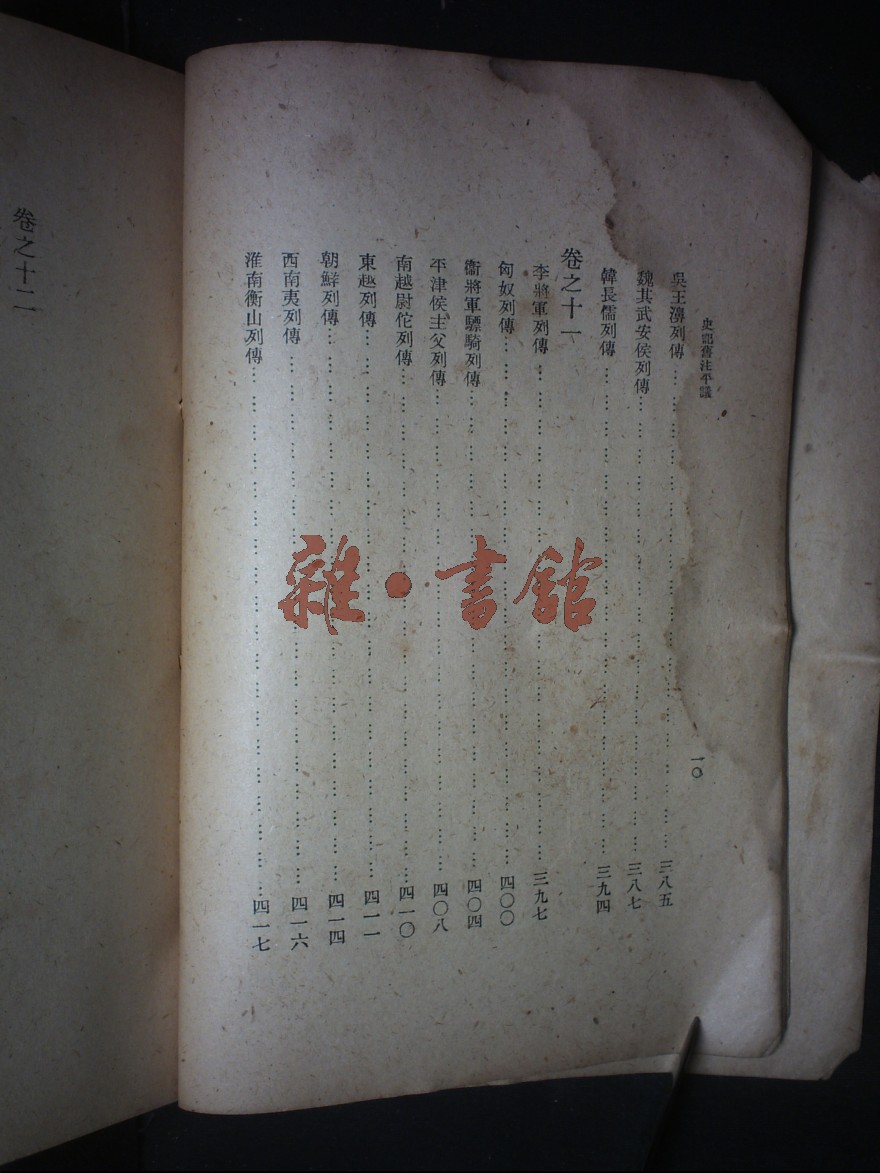 史記舊注平議
一〇
吳王濞列傳……三八五
魏其武安侯列傳……三八七
韓長儒列傳……三九四
卷之十一
李將軍列傳……三九七
匈奴列傳……四〇〇
衞將軍驃騎列傳……四〇四
平津侯主父列傳……四〇八
南越尉佗列傳……四一〇
東越列傳……四一一
朝鮮列傳……四一四
西南夷列傳……四一六
淮南衡山列傳……四一七
卷之十二
雜·書館